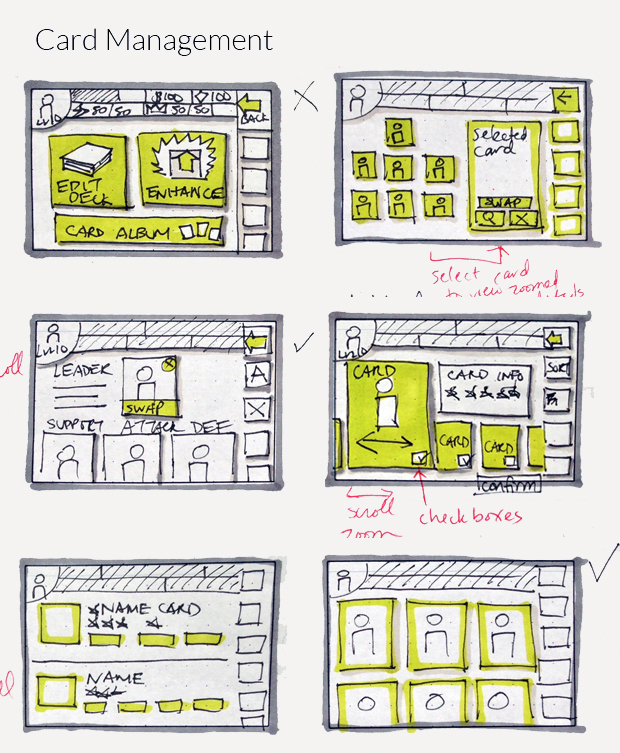 Card Management
$100 100
Lv10 50/50 50/50
BACK
EDIT
DECK
ENHANCE
CARD ALBUM
X
Selected
Card
SWAP
Q X
select card
to view zoomed
Lv10
LEADER
X
A
SWAP
X
SUPPORT ATTACK DEF
Lv10
CARD
CARD INFO
SORT
CARD
CARD
confirm
scroll
zoom
checkboxes
NAME CARD
NAME